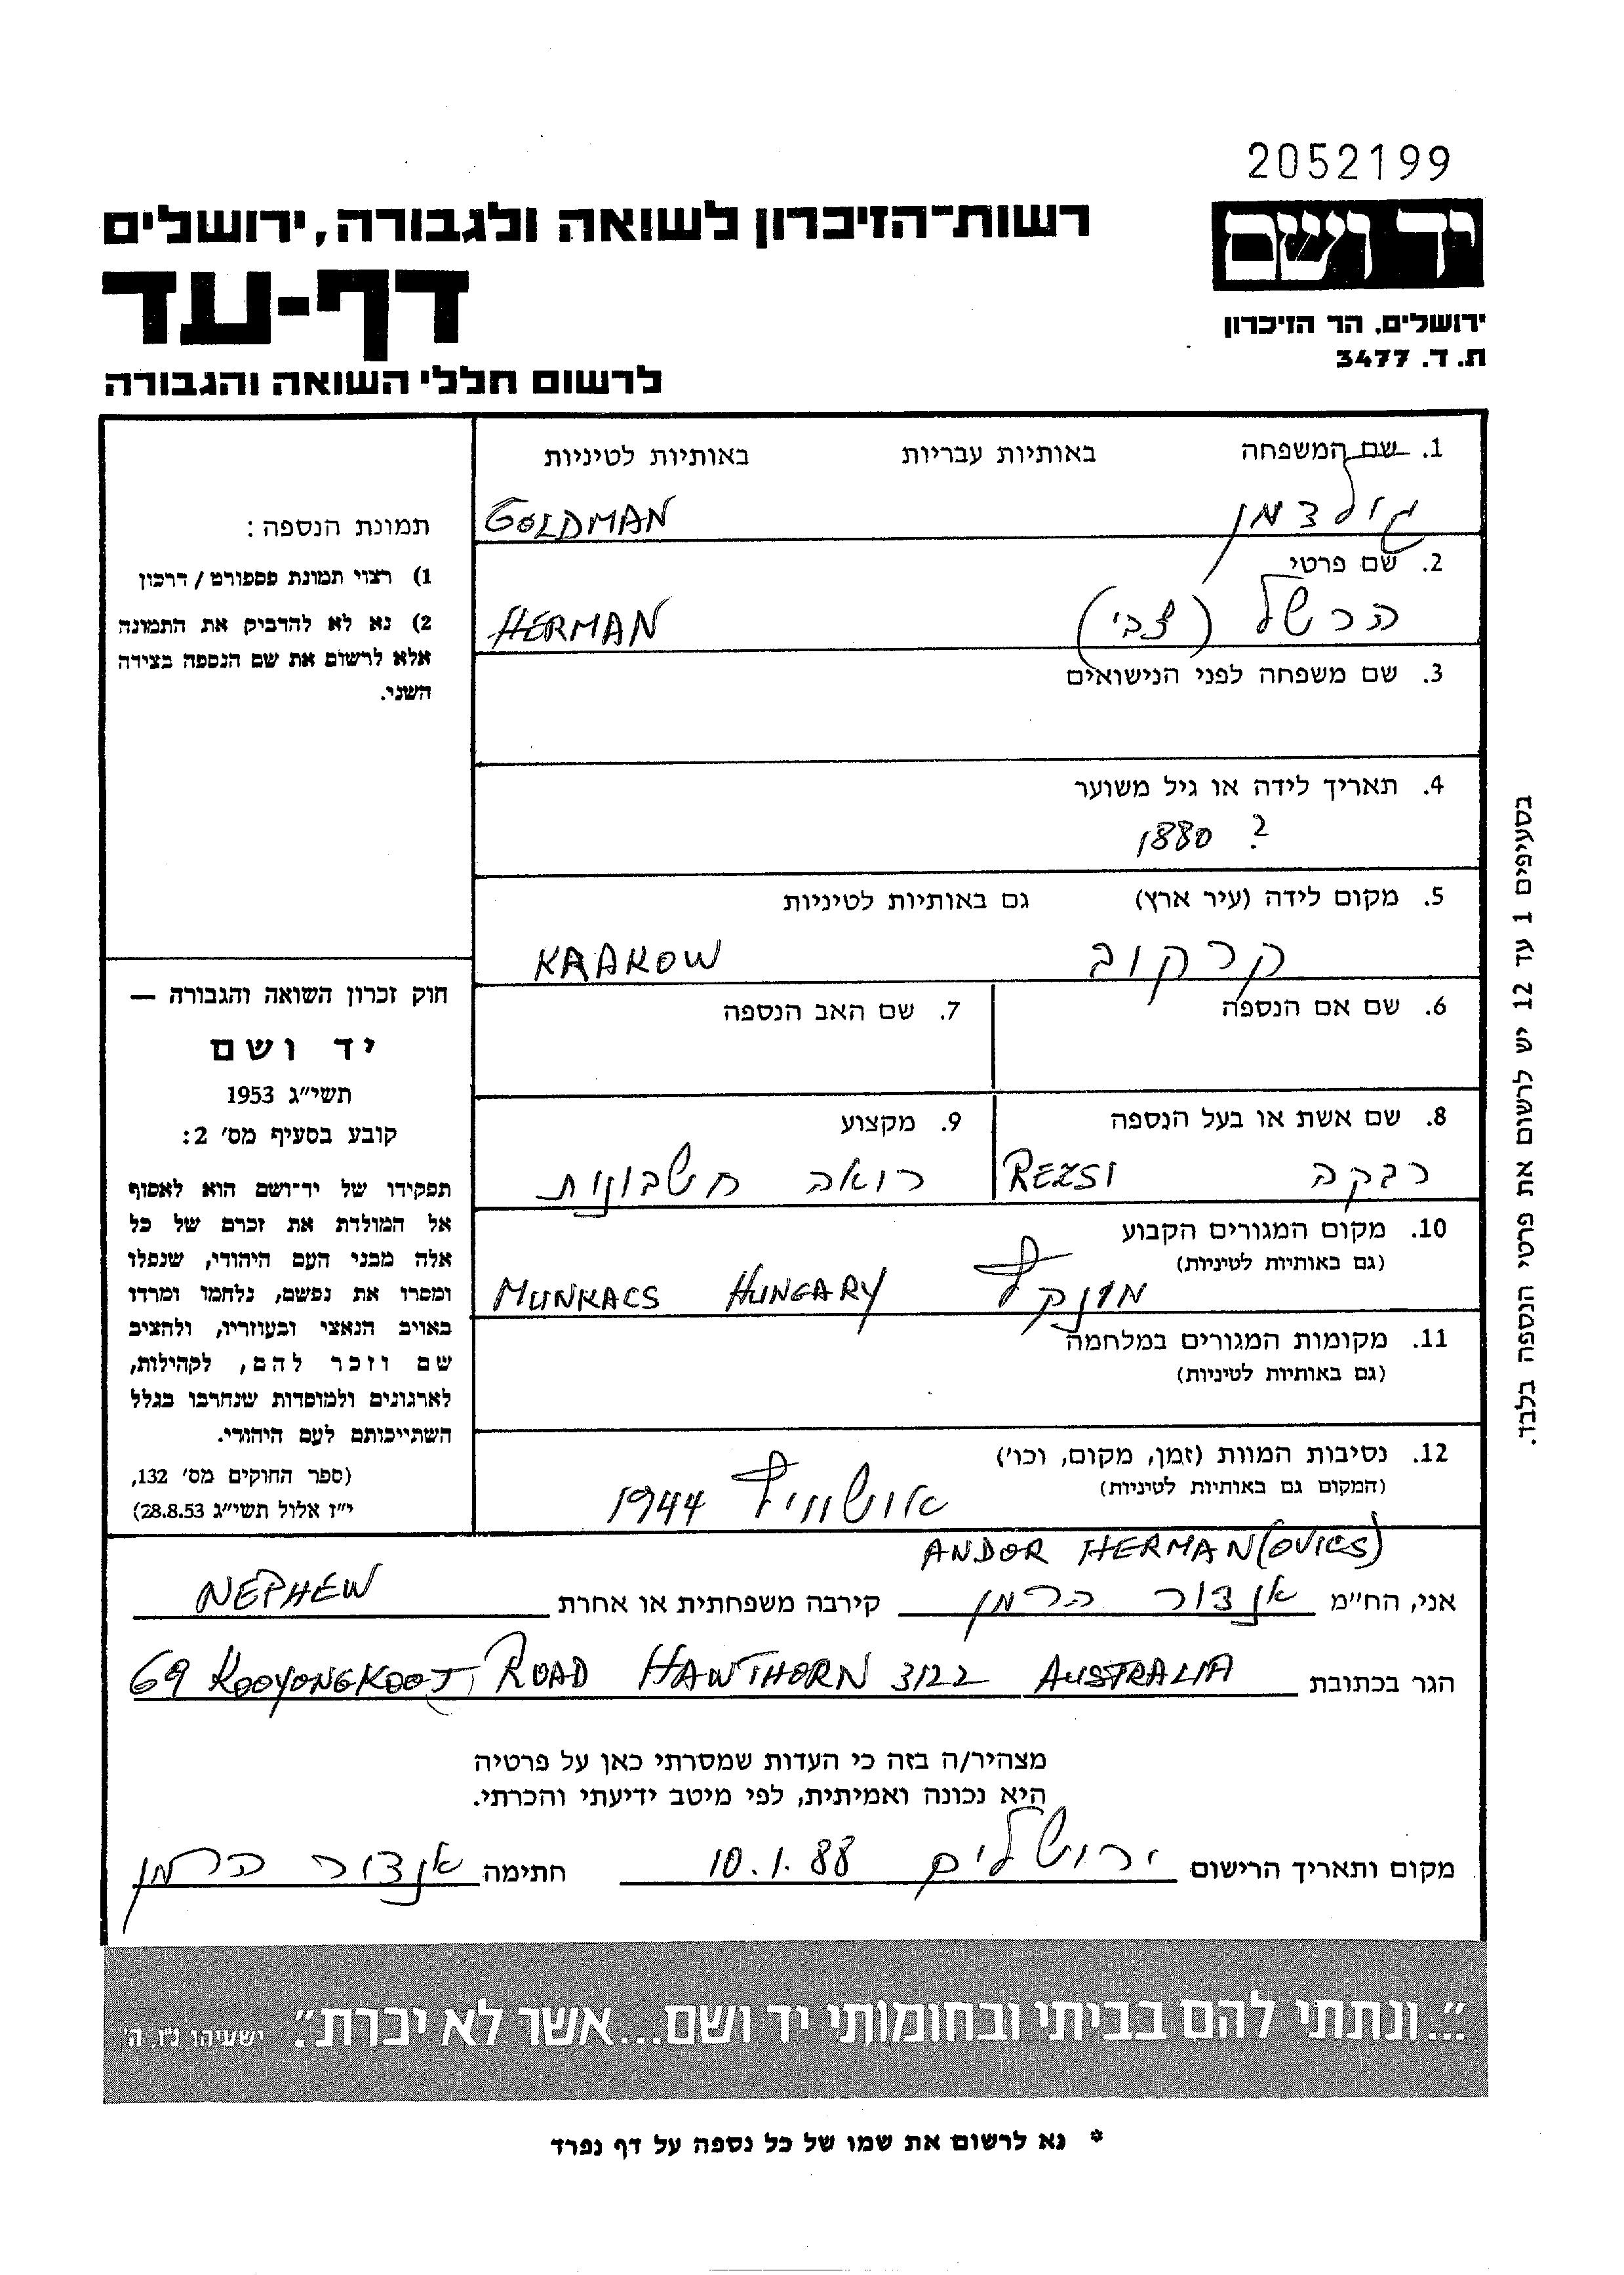 2052199
יד ושם
רשות-הזיכרון לשואה ולגבורה, ירושלים
דף-עד
ירושלים, הר הזיכרון
ת. ד. 3477
לרשום חללי השואה והגבורה
1. שם המשפחה באותיות עבריות באותיות לטיניות
גולדמן GOLDMAN
2. שם פרטי
הרשל (צבי) HERMAN
3. שם משפחה לפני הנישואים
4. תאריך לידה או גיל משוער
? 1880
5. מקום לידה (עיר ארץ) גם באותיות לטיניות
קרקוב KRAKOW
6. שם אם הנספה 7. שם האב הנספה
8. שם אשת או בעל הנספה 9. מקצוע
רבקה REZSI רואה חשבונות
10. מקום המגורים הקבוע
(גם באותיות לטיניות)
מונקץ' MUNKACS HUNGARY
11. מקומות המגורים במלחמה
(גם באותיות לטיניות)
12. נסיבות המוות (זמן, מקום, וכו')
(המקום גם באותיות לטיניות)
אושוויץ 1944
תמונת הנספה:
1) רצוי תמונת פספורט / דרכון
2) נא לא להדביק את התמונה
אלא לרשום את שם הנספה בצידה
השני.
חוק זכרון השואה והגבורה —
יד ושם
תשי״ג 1953
קובע בסעיף מס׳ 2:
תפקידו של יד־ושם הוא לאסוף
אל המולדת את זכרם של כל
אלה מבני העם היהודי, שנפלו
ומסרו את נפשם, נלחמו ומרדו
באויב הנאצי ובעוזריו, ולהציב
שם וזכר להם, לקהילות,
לארגונים ולמוסדות שנחרבו בגלל
השתייכותם לעם היהודי.
(ספר החוקים מס׳ 132,
י״ז אלול תשי״ג 28.8.53)
בסעיפים 1 עד 12 יש לרשום את פרטי הנספה בלבד.
ANDOR HERMAN(OVICS)
אני, הח״מ אנדור הרמן קירבה משפחתית או אחרת NEPHEW
הגר בכתובת 69 KOOYONGKOOT ROAD HAWTHORN 3122 AUSTRALIA
מצהיר/ה בזה כי העדות שמסרתי כאן על פרטיה
היא נכונה ואמיתית, לפי מיטב ידיעתי והכרתי.
מקום ותאריך הרישום ירושלים 10.1.88 חתימה אנדור הרמן
״...ונתתי להם בביתי ובחומותי יד ושם...אשר לא יכרת״. ישעיהו נ״ו, ה׳
* נא לרשום את שמו של כל נספה על דף נפרד